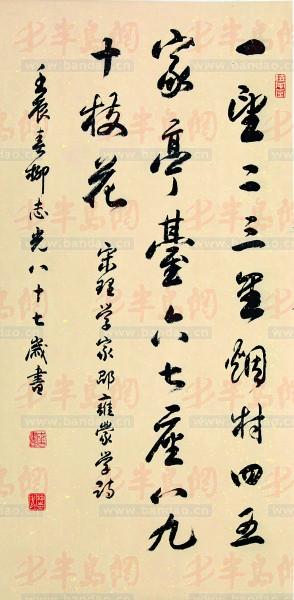 一望二三里烟村四五
家亭臺六七座八九
十枝花
宋理学家邵雍蒙学诗
壬辰春柳志光八十七歲書
半島網
www.bandao.cn